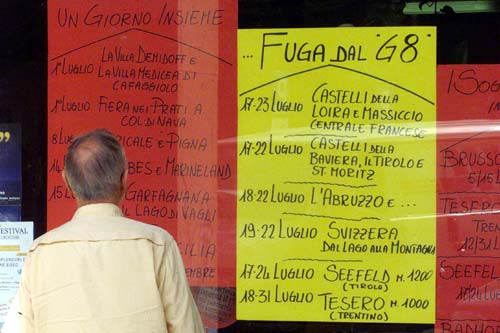 UN GIORNO INSIEME
1° LUGLIO LA VILLA DEMIDOFF E
LA VILLA MEDICEA DI
CAFAGGIOLO
1° LUGLIO FIERA NEI PRATI A
COL DI NAVA
8 LUGLIO
RICALE E PIGNA
14
BES E MARINELAND
15 L
GARFAGNANA
IL LAGO DI VAGLI
EMBRE
... FUGA DAL "G8"
17-23 LUGLIO CASTELLI DELLA
LOIRA E MASSICCIO
CENTRALE FRANCESE
17-22 LUGLIO CASTELLI DELLA
BAVIERA, IL TIROLO E
ST MORITZ
18-22 LUGLIO L'ABRUZZO E ...
19-22 LUGLIO SVIZZERA
DAL LAGO ALLA MONTAGNA
17-24 LUGLIO SEEFELD M. 1200
(TIROLO)
18-31 LUGLIO TESERO M. 1000
(TRENTINO)
I SOG
BRUSSO
TESERO
TRENTINO
SEEFE
17/24 LUGLIO
FESTIVAL